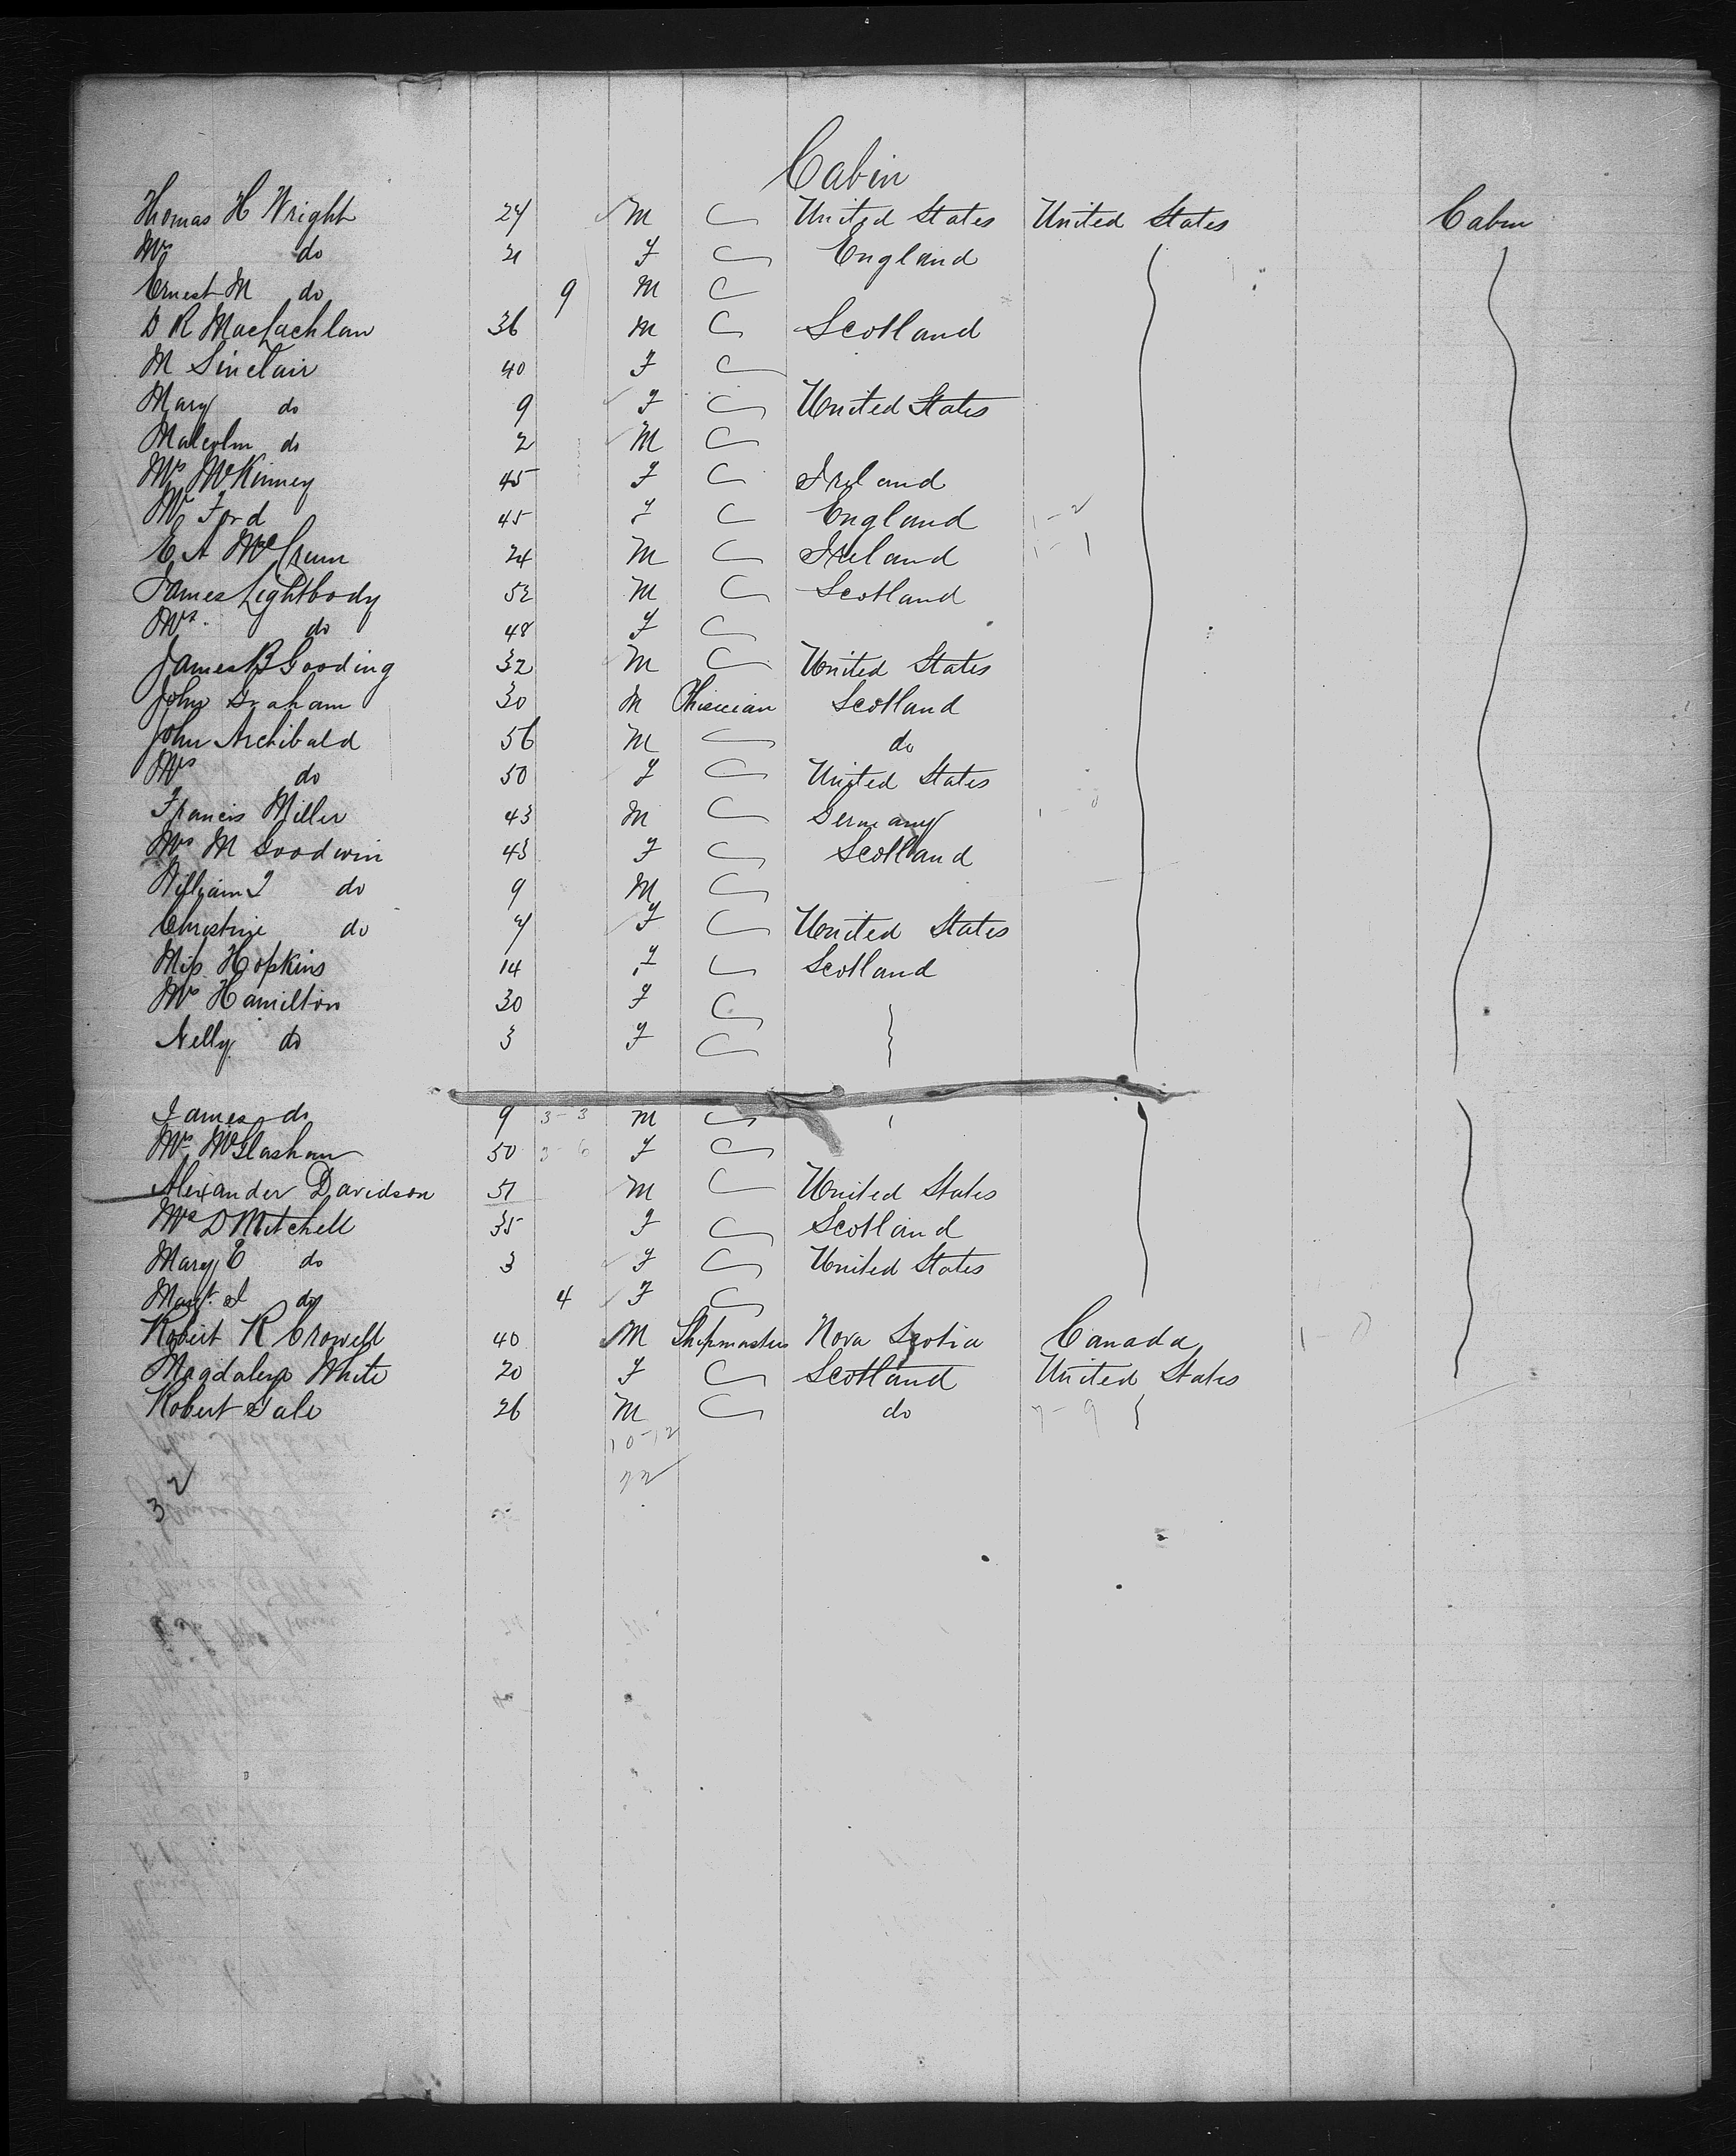 Cabin
Thomas H Wright 24 M United States United States Cabin
Mrs do 21 F England
Ernest M do 9 M
D R MacLachlan 36 M Scotland
M Sinclair 40 F
Mary do 9 F United States
Malcolm do 2 M
Mrs McKinney 45 F Ireland
Mrs Ford 45 F England 1-2
E A McCrum 24 M Ireland 1-1
James Lightbody 52 M Scotland
Mrs. do 48 F
James B Gooding 32 M United States
John Graham 30 M Phisician Scotland
John Archibald 56 M do
Mrs do 50 F United States
Francis Miller 43 M Germany
Mrs M Goodwin 43 F Scotland
William J do 9 M
Christine do 7 F United States
Miss Hopkins 14 F Scotland
Mrs Hamilton 30 F
Nelly do 3 F
James do 9 3-3 M
Mrs McGlashan 50 3 6 F
Alexander Davidson 51 M United States
Mrs D Mitchell 35 F Scotland
Mary E do 3 F United States
Margt. I do 4 F
Robert R Crowell 40 M Shipmaster Nova Scotia Canada 1-0
Magdalena White 20 F Scotland United States
Robert Gale 26 M do 7-9
10-12
22
32